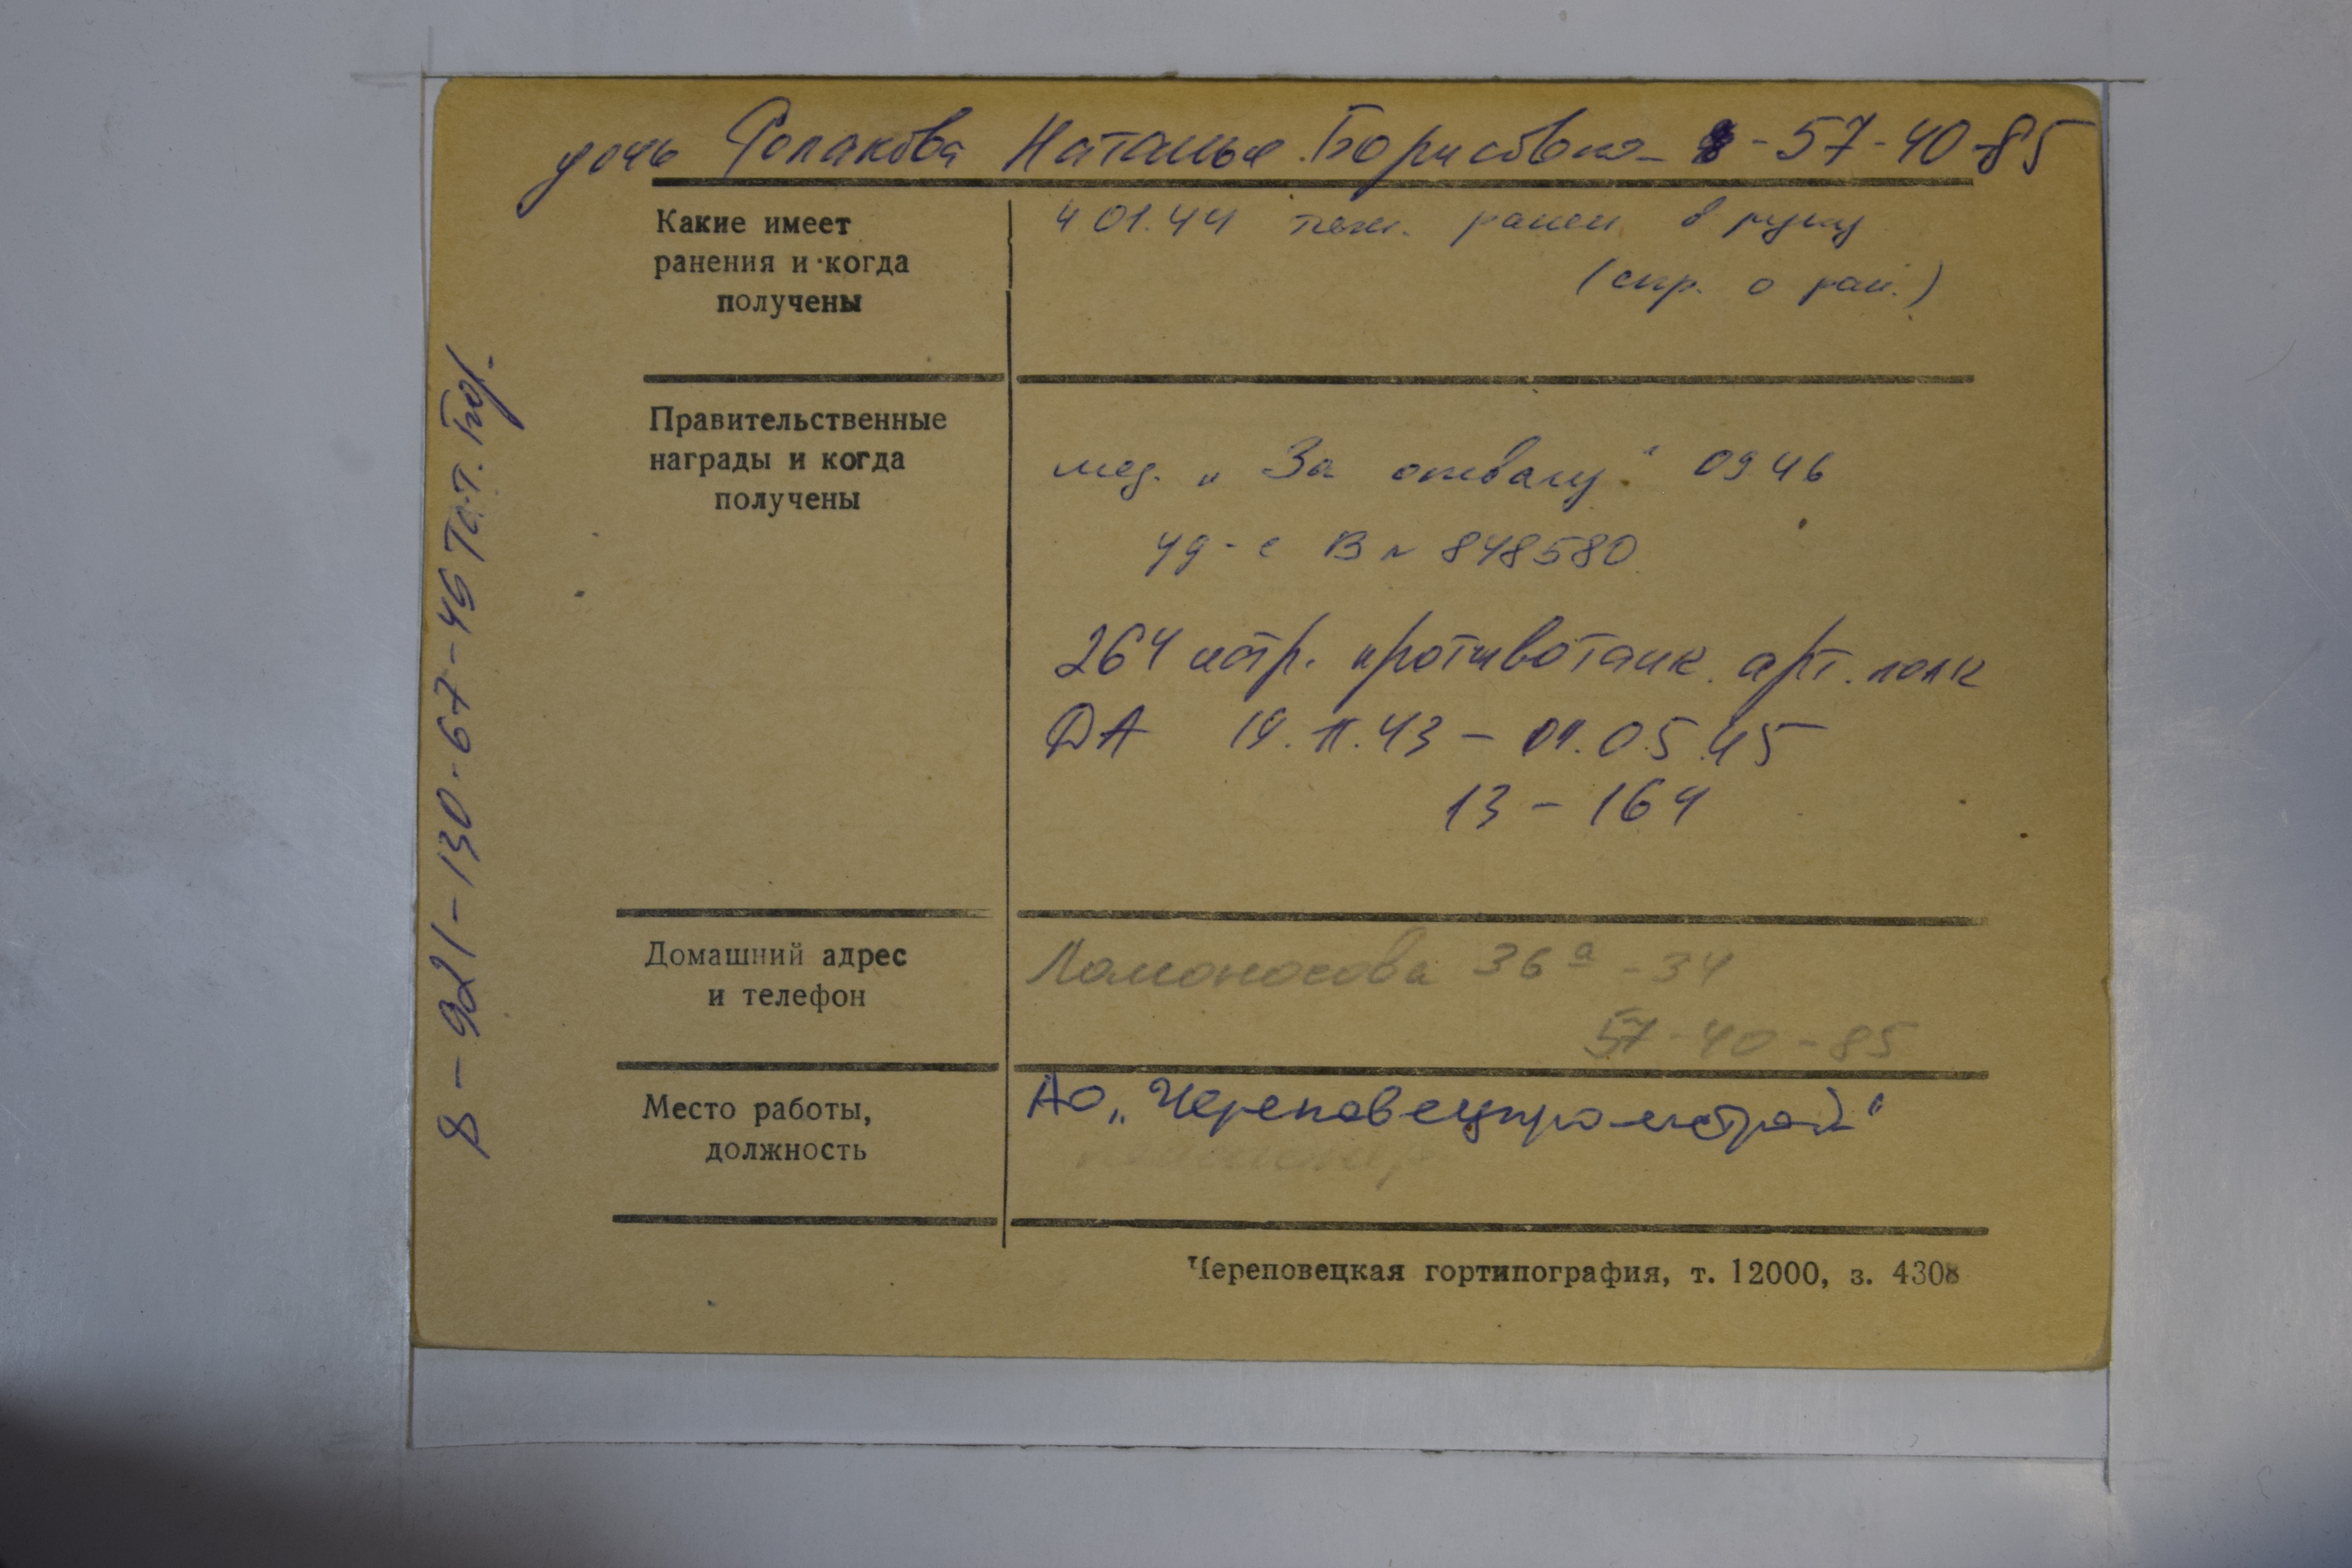 дочь Наталья Борисовна - 8-57-40-85
Какие имеет
ранения и когда
получены
4 01.44 тяж. ранен в руку
(спр. о ран.)
Правительственные
награды и когда
получены
мед. „За отвагу“ 09 46
уд-е В № 848580
264 истр. противотанк. арт. полк
ДА 19.11.43 - 01.05.45
13 - 164
Домашний адрес
и телефон
Ломоносова 36а - 34
57-40-85
Место работы,
должность
АО „Череповецпромстрой“
пенсионер
Череповецкая гортипография, т. 12000, з. 4308
8-921-130-67-46 Тат. Бор.